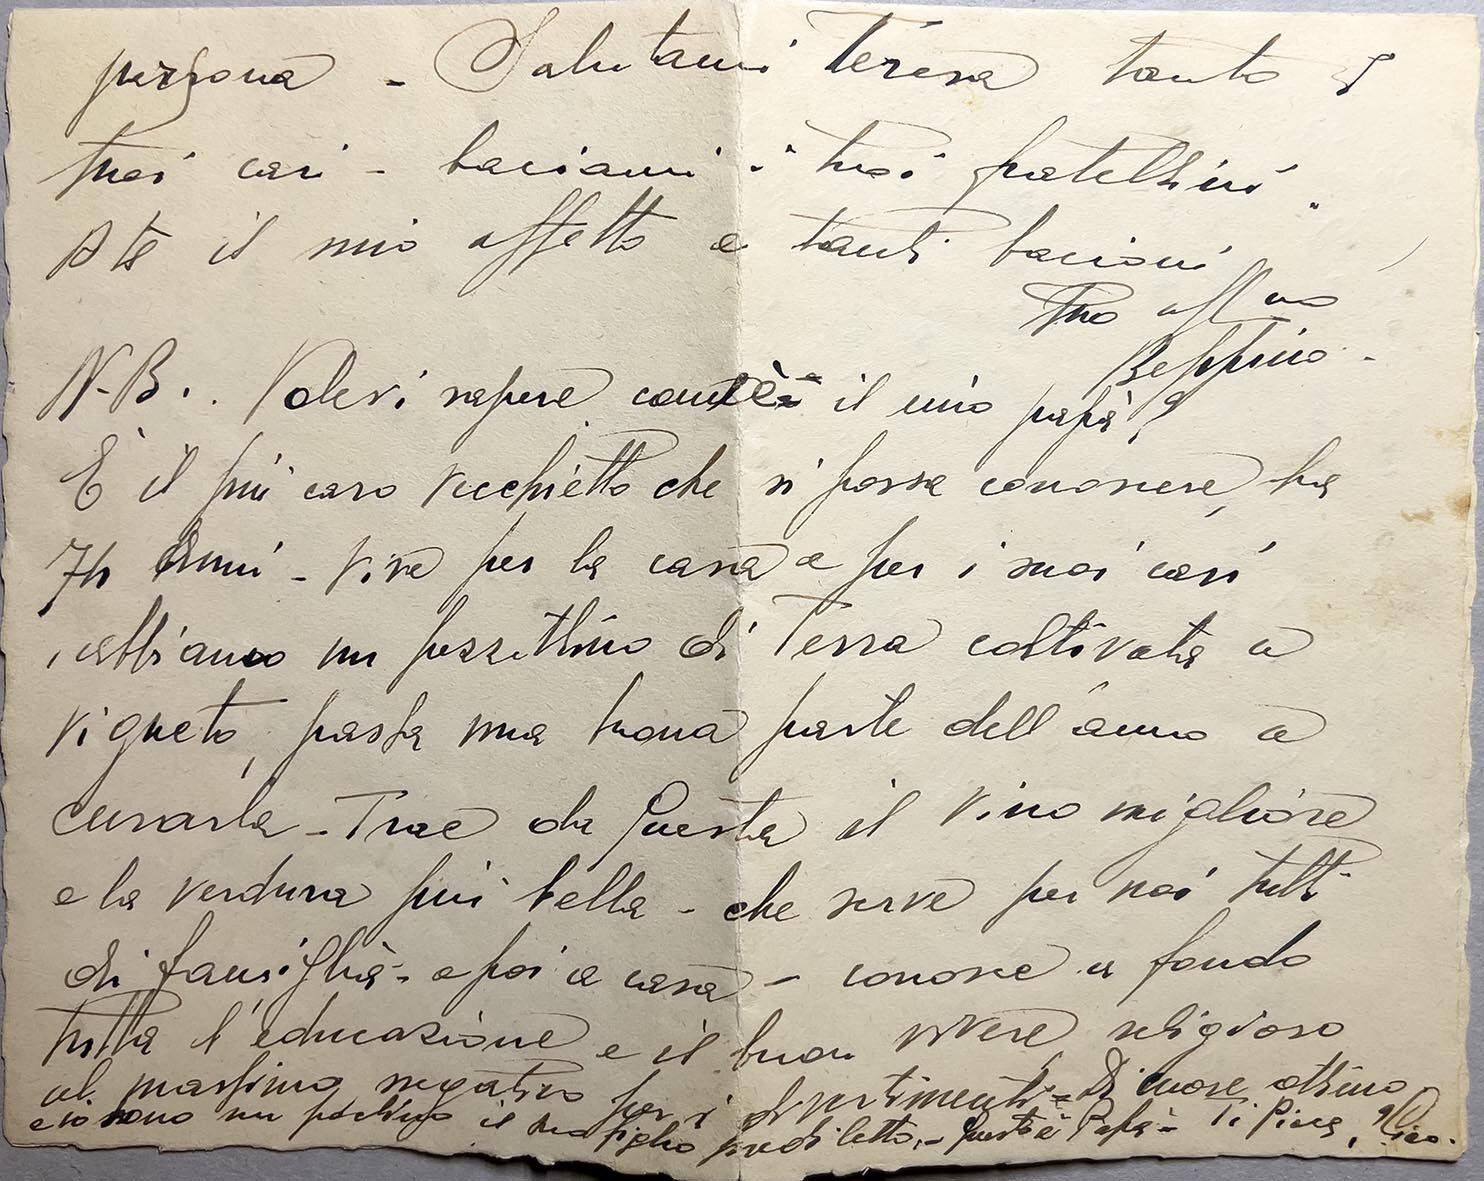 persona - Salutami Teresa tanto e
tuoi cari - baciami i tuoi fratellini.
A te il mio affetto e tanti bacioni
Tuo aff mo
Beppino -
N.B. . Volevi sapere com'è il mio papà?
È il piú caro vecchietto che si possa conoscere, ha
74 anni - vive per la casa e per i suoi cari
, abbiamo un pezzettino di Terra coltivata a
vigneto, passa una buona parte dell'anno a
curarla - Trae da questa il vino migliore
e la verdura piú bella - che serve per noi tutti
di famiglia - e poi a casa - conosce a fondo
tutta l'educazione e il buon vivere religioso
al massimo negativo per i divertimenti - Di cuore ottimo
e io sono un pochino il suo figlio prediletto. - Questo è Papà - Ti Piace,